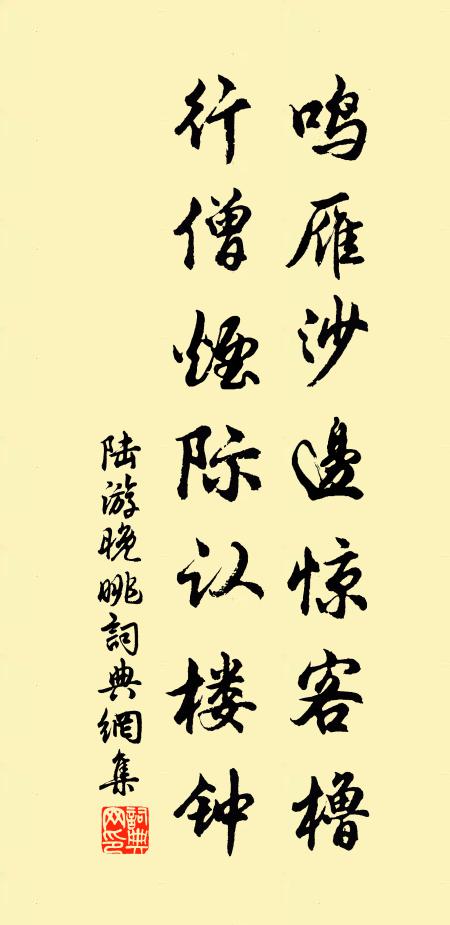 鸣雁沙邊惊客橹
行僧煙际认楼钟
陆游晚眺詞典網集
詞典
网印